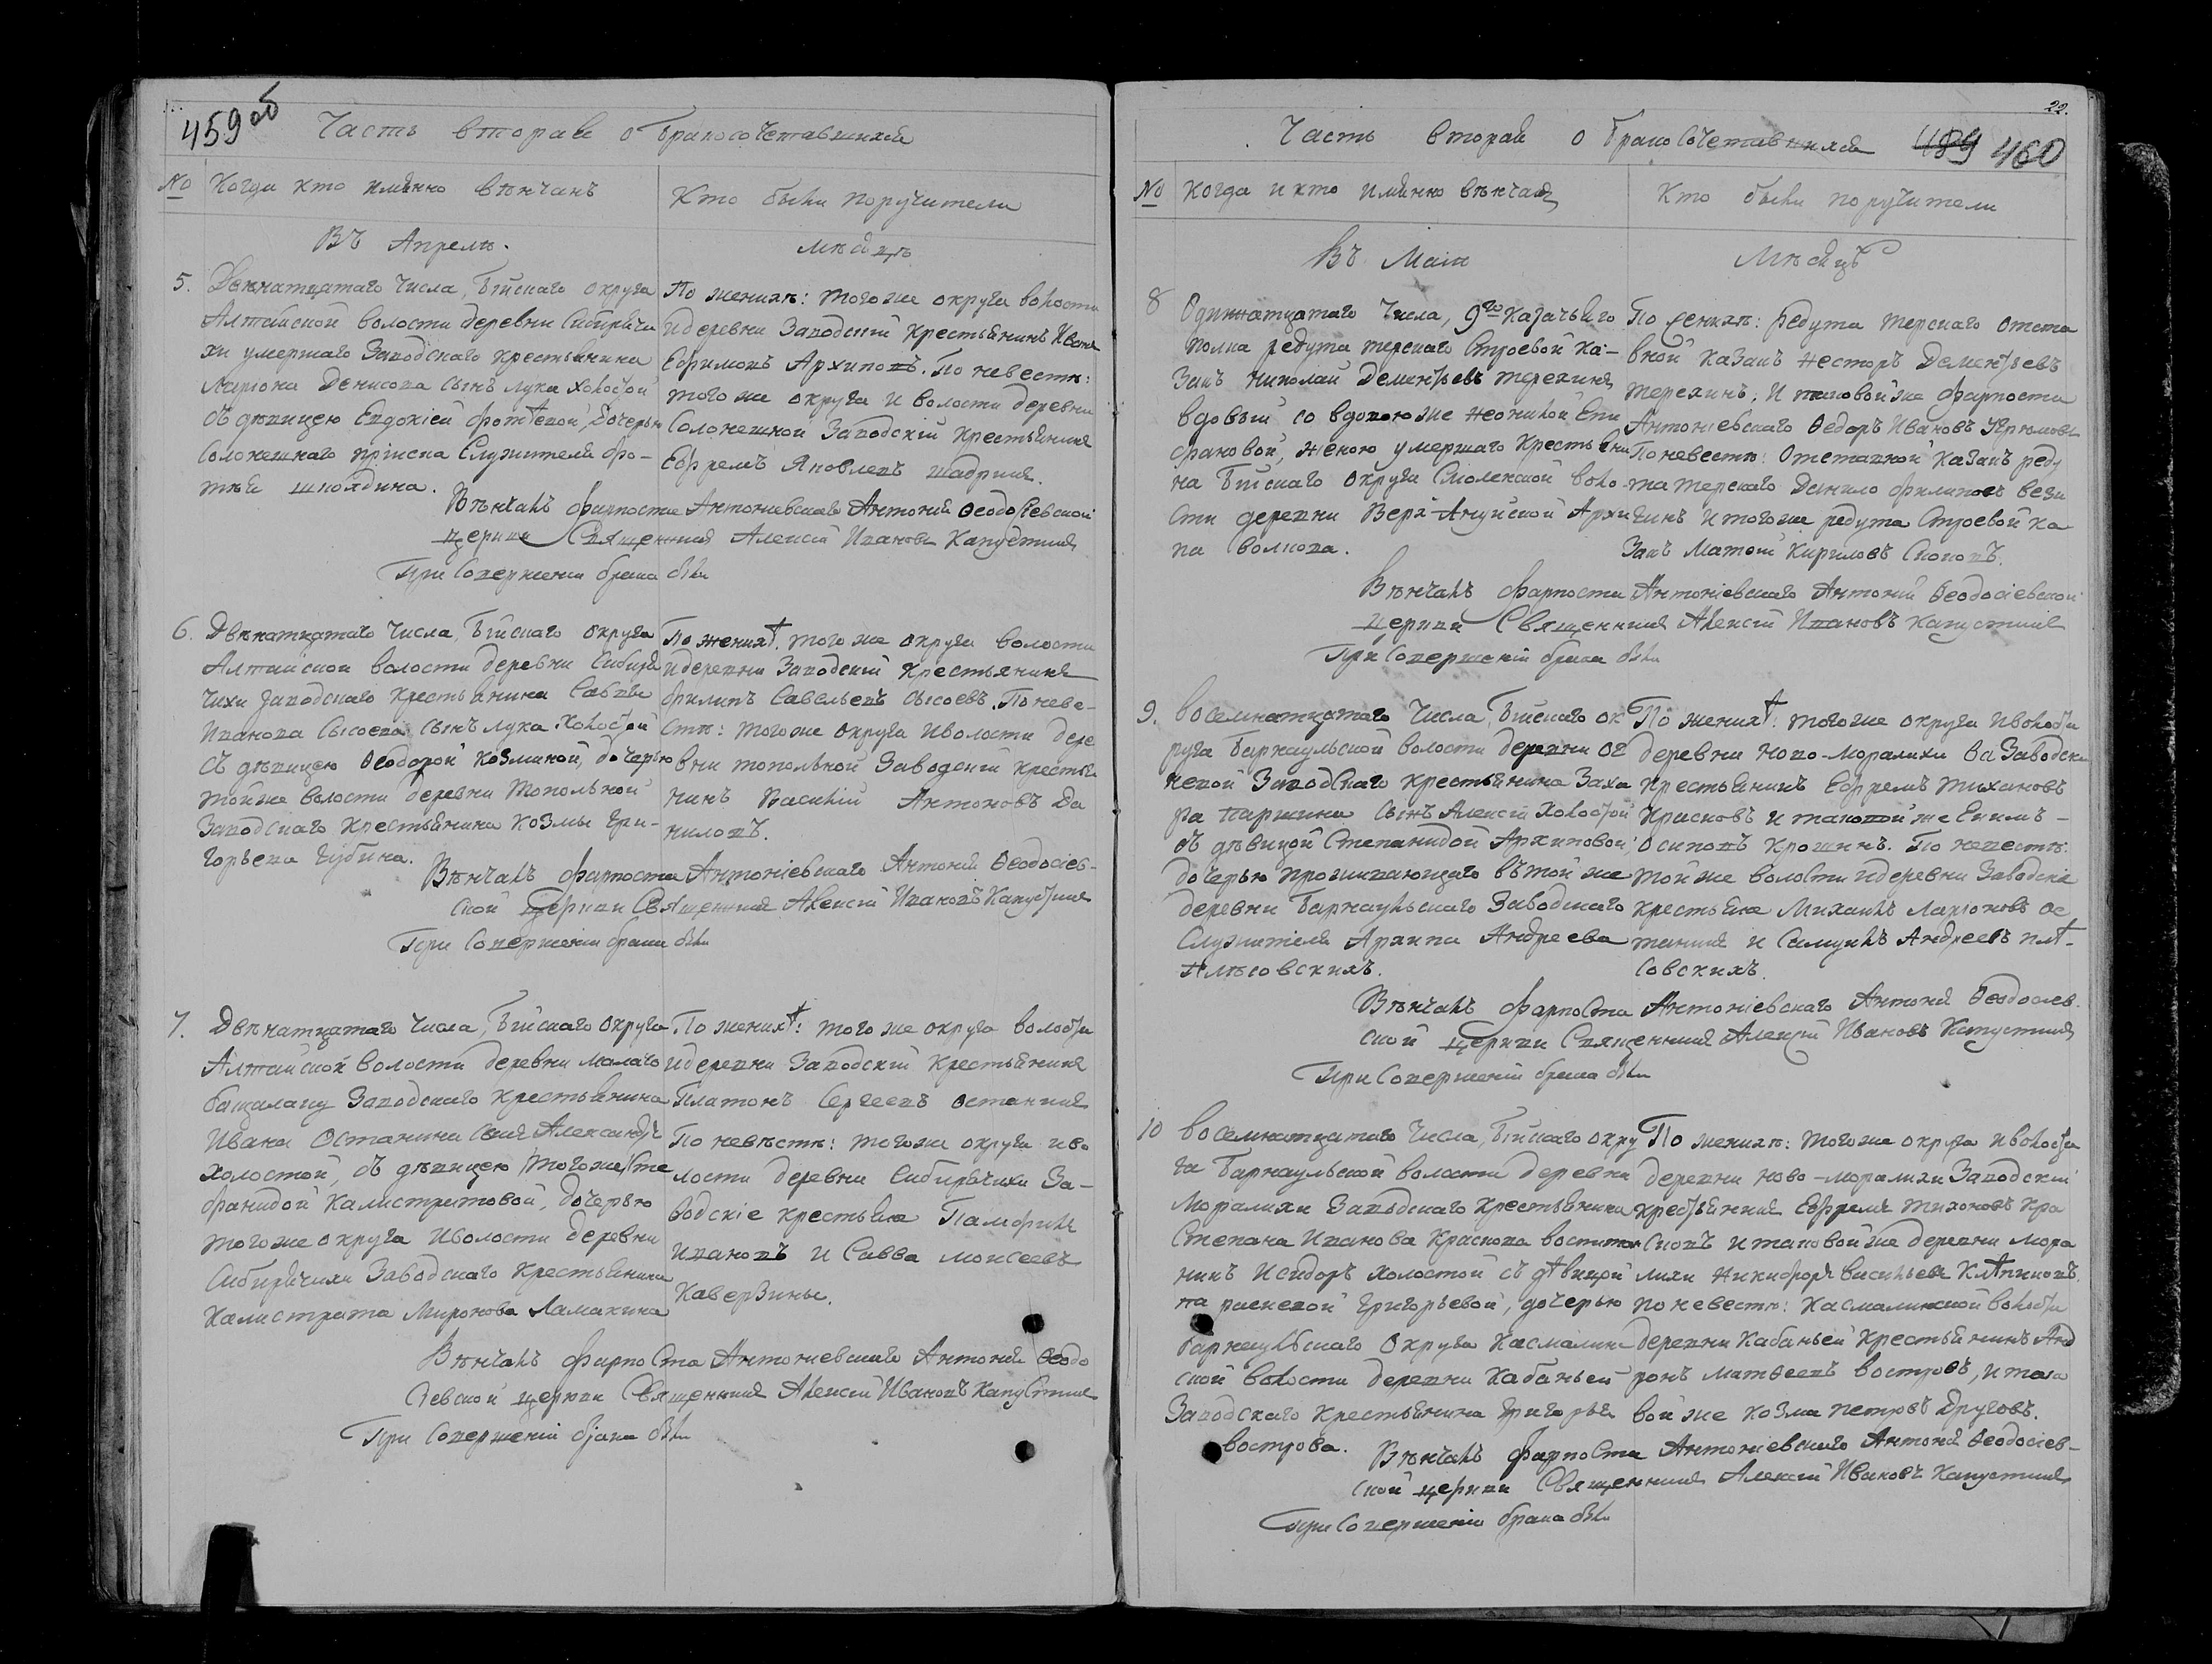 459 об
Часть вторая о бракосочетавшихся
№ Когда кто имянно венчанъ
Кто были поручители
Въ Апреле.
Месяце
5. Двенатцатаго числа, Бійскаго округа
Алтайской волости деревни Сибирячи
хи умершаго Заводскаго крестьянина
Лариона Денисова сынъ Лука холостой
съ девицею Евдокіей Фотѣевой, дочерью
Солонешнаго пріиска Служителя Фо-
тѣя
По женихе: того же округа волости
и деревни Заводскій крестьянинъ Иванъ
Ефимовъ Архиповъ. По невесте:
того же округа и волости деревни
Солонешной Заводскій крестьянинъ
Ефремъ Яковлевъ Шадринъ.
Венчалъ Фарпоста Антониевскаго Антоній Феодосіевской
церкви Священникъ Алексій Ивановъ Капустинъ
При Совершеніи брака были
6. Двенатцатаго числа, Бійскаго округа
Алтайской волости деревни Сибиря
чихи Заводскаго крестьянина Савелья
Иванова Сысоева сынъ Лука холостой
съ девицею Феодорой Козминой, дочерью
той же волости деревни Топольной
Заводскаго крестьянина Козмы Гри-
горьева Губина.
По женихѣ: того же округа волости
и деревни Заводскій крестьянинъ
Филипъ Савельевъ Сысоевъ. По неве-
сте: того же округа и волости дере
вни Топольной Заводскій крестья
нинъ Василій Антоновъ Да
ниловъ.
Венчалъ Фарпоста Антоніевскаго Антоній Феодосіев-
ской Церкви Священникъ Алексій Ивановъ Капустинъ
При Совершеніи брака были
7. Двенатцатаго числа, Бійскаго округа
Алтайской волости деревни Малаго
Бащалацу Заводскаго крестьянина
Ивана Останина сынъ Александръ
холостой, съ девицею того же Сте
фанидой Калистратовой, дочерью
того же округа и волости деревни
Сибирячихи Заводскаго крестьянина
Калистрата Миронова Ламакина
По женихѣ: того же округа волости
и деревни Заводскій крестьянинъ
Платонъ Сергеевъ Останинъ
По невесте: того же округа и во
лости деревни Сибирячихи За-
водскіе крестьяна Памфилъ
Ивановъ и Савва Моисеевъ
Каверзины.
Венчалъ Фарпоста Антониевскаго Антоній Феодо
сіевской церкви Священникъ Алексій Ивановъ Капустинъ
При Совершеніи брака были
22.
Часть вторая о бракосочетавшихся 489 460
№ Когда и кто имянно венчанъ
Кто были поручители
Въ Маіи
Месяце
8 Одиннатцатаго числа, 9го Казачьяго
полка редута Терскаго Строевой Ка-
закъ Николай Дементьевъ Терехинъ
вдовый со вдовою же Неонилой Епи
фановой, женою умершаго крестьяни
на Бійскаго округа Смоленской воло
сти деревни Верх-Ануйской Архи
па Волкова.
По женихе: редута Терскаго отста
вной казакъ Несторъ Дементьевъ
Терехинъ, и таковой же Фарпоста
Антониевскаго Федоръ Ивановъ Угрюмовъ
По невесте: Отставной казакъ реду
та Терскаго Данило Филиповъ Вези
гинъ и того же редута Строевой ка
закъ Матвій Кириловъ Скоповъ.
Венчалъ Фарпоста Антоніевскаго Антоній Феодосіевской
церкви Священникъ Алексій Ивановъ Капустинъ
При Совершеніи брака были
9. Восемнатцатаго числа, Бійскаго ок
руга Барнаульской волости деревни
Заводскаго крестьянина Заха
ра Паршина сынъ Алексій холостой
съ девицой Степанидой Архиповой,
дочерью проживающаго въ той же
деревни Барнаульскаго Заводскаго
Служителя Архипа Андреева
Плесовскихъ.
По женихѣ: того же округа и волости
деревни Ново-Моралихи Заводски
крестьянинъ Ефремъ Тихановъ
Красновъ и таковой же Екимъ
Осиповъ Крошинъ. По невесте:
той же волости и деревни Заводскіе
крестьяна Михаилъ Ларіоновъ Ос
танинъ и Самуилъ Андреевъ Плѣ-
совскихъ.
Венчалъ Фарпоста Антоніевскаго Антоній Феодосіев-
ской церкви Священникъ Алексій Ивановъ Капустинъ
При Совершеніи брака были
10 Восемнатцатаго числа, Бійскаго окру
га Барнаульской волости деревни
Моралихи Заводскаго крестьянина
Степана Иванова Краснова воспитан
никъ Исидоръ холостой съ дѣвицой
Параскевой Григорьевой, дочерью
Барнаульскаго Округа Касмалин
ской волости деревни Кабаньей
Заводскаго крестьянина Григорья
Вострова.
По женихе: того же округа и волости
деревни Ново-Моралихи Заводскій
крестьянинъ Ефремъ Тихоновъ Кра
сновъ и таковой же деревни Мора
лихи Никифоръ Васильевъ Клѣпиковъ.
По невесте: Касмалинской волости
деревни Кабаньей крестьянинъ Анд
ронъ Матвеевъ Востровъ, и тако
вой же Козма Петровъ Друговъ.
Венчалъ Фарпоста Антониевскаго Антоній Феодосіев-
ской церкви Священникъ Алексій Ивановъ Капустинъ
При Совершеніи брака были